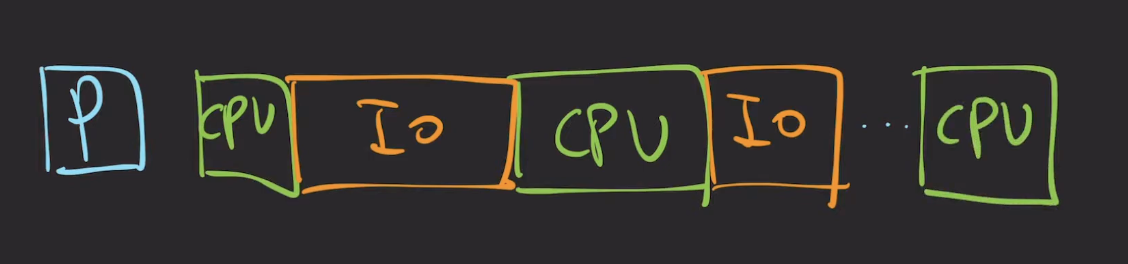 P CPU Io CPU Io ... CPU